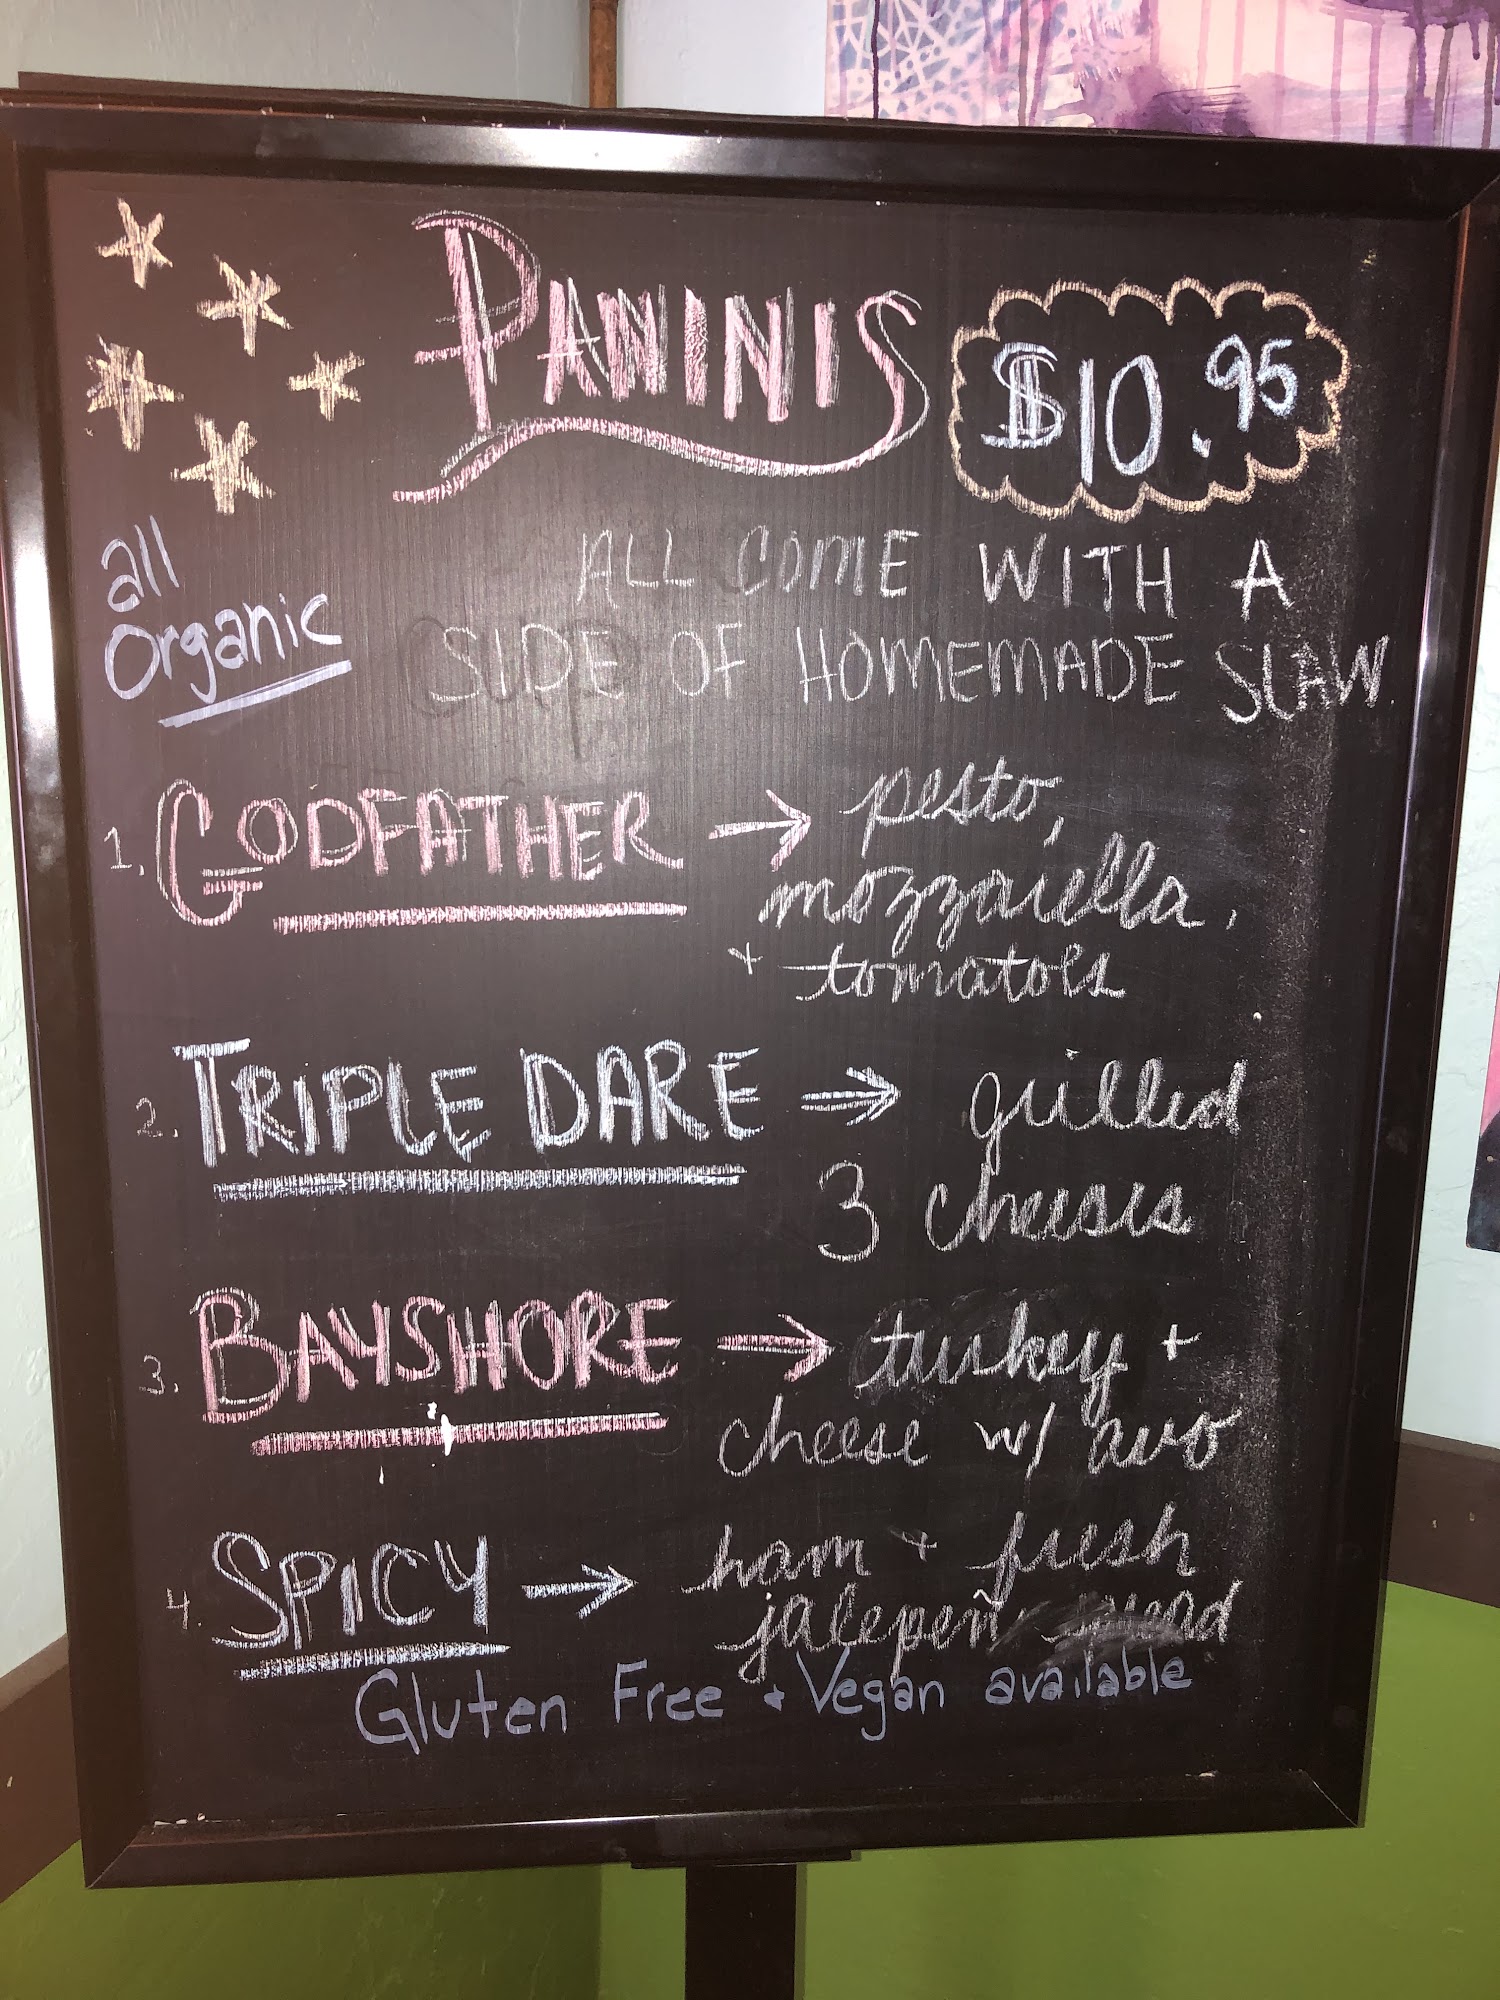 PANINIS $10.95
all
organic
ALL COME WITH A
SIDE OF HOMEMADE SLAW.
1. GODFATHER → pesto,
mozzarella,
+ tomatoes
2. TRIPLE DARE → grilled
3 cheeses
3. BAYSHORE → turkey +
cheese w/ avo
4. SPICY → ham + fresh
jalepeñ
Gluten Free + Vegan available